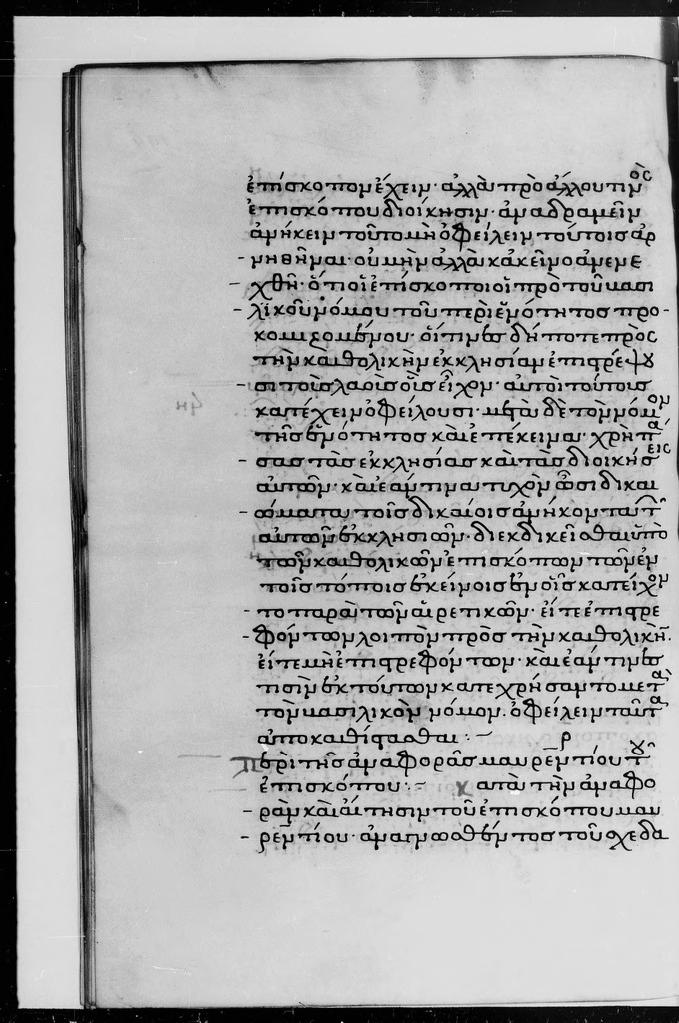 ἐπίσκοπον ἔχειν· ἀλλὰ πρὸ ἄλλου τινὸς
ἐπισκόπου διοίκησιν· ἀναδραμεῖν
ἀνήκειν τοῦτο μὴ ὀφείλειν τούτοις ἀρ
νηθῆναι· οὐ μὴν ἀλλὰ κἀκεῖνο ἀνενε
χθῆ· ὅτι οἱ ἐπίσκοποι οἱ πρὸ τοῦ βασι
λικοῦ νόμου τοῦ περὶ ἑνότητος προ
κομιζομένου· οἵτινες δή ποτε πρὸς
τὴν καθολικὴν ἐκκλησίαν ἐπιστρέψου
σι τοῖς λαοῖς οἷς εἶχον· αὐτοὶ τούτοις
κατέχειν ὀφείλουσι· μετὰ δὲ τὸν νόμον
τῆς ἑνότητος καὶ ἐπέκεινα· χρὴ πά
σας τὰς ἐκκλησίας καὶ τὰς διοικήσεις
αὐτῶν· καὶ ἐάν τινα τυχὸν ὦσι δικαι
ώματα τοῖς δικαίοις ἀνήκοντα τῶν
αὐτῶν ἐκκλησιῶν· διεκδικεῖσθαι ὑπὸ
τῶν καθολικῶν ἐπισκόπων τῶν ἐν
τοῖς τόποις ἐκείνοις ἐν οἷς κατείχον
το παρὰ τῶν αἱρετικῶν· εἴτε ἐπιστρε
φόντων λοιπὸν πρὸς τὴν καθολικήν·
εἴτε μὴ ἐπιστρεφόντων· καὶ ἐάν τινες
τισὶν ἐκ τούτων κατεχρήσαντο μετὰ
τὸν βασιλικὸν νόμον· ὀφείλειν ταῦτα
ἀποκαθίστασθαι :– ρ
Περὶ τῆς ἀναφορᾶς μαυρεντίου τοῦ
ἐπισκόπου :– Κατὰ τὴν ἀναφο
ρὰν καὶ αἴτησιν τοῦ ἐπισκόπου μαυ
ρεντίου· ἀναγνωσθέντος τοῦ σχεδα